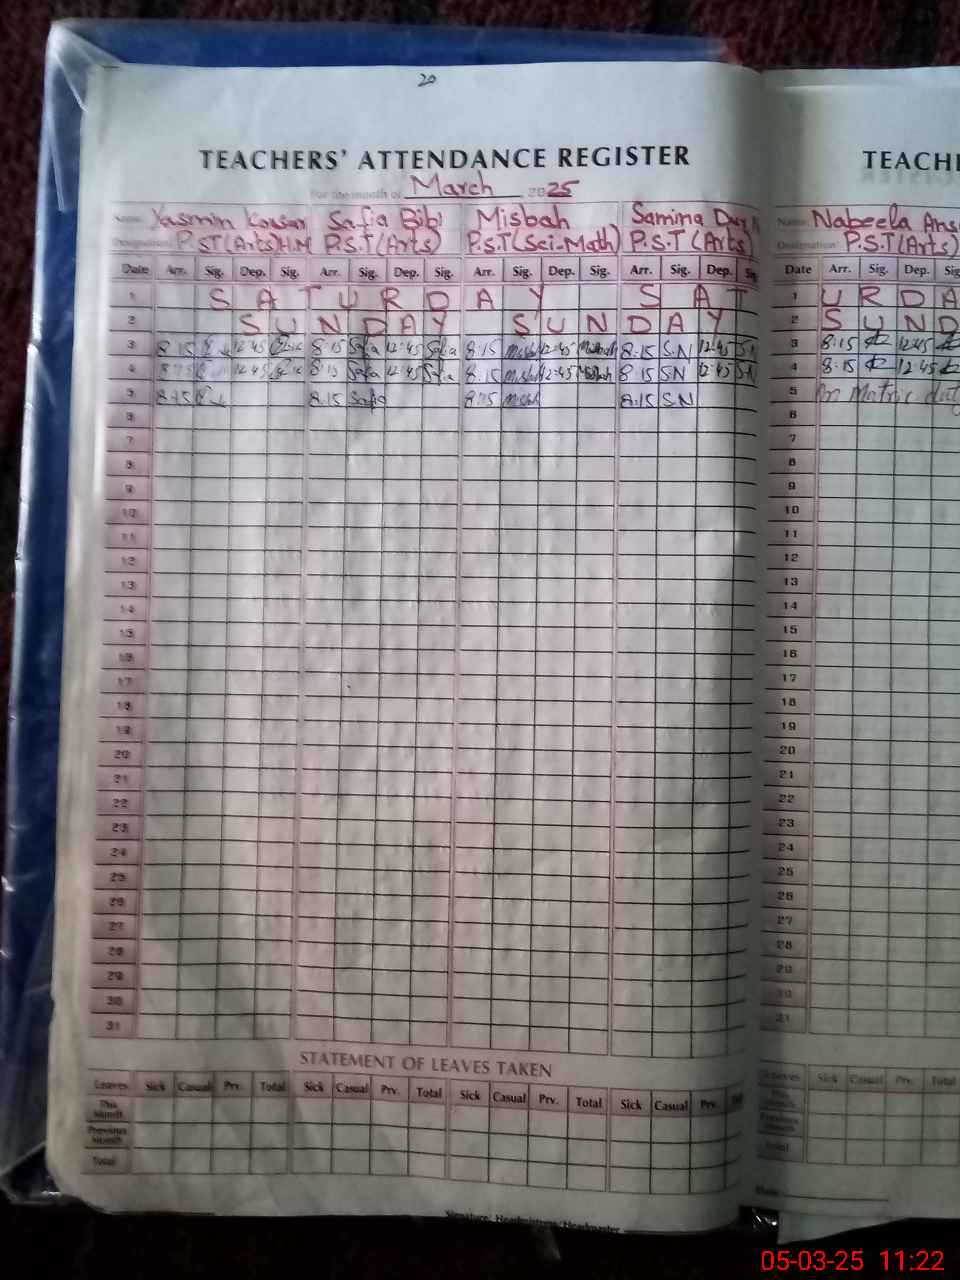 20
TEACHERS' ATTENDANCE REGISTER
For the month of March 2025
Name: Yasmin Kousar Safia Bibi Misbah Samina
Designation: P.S.T(Arts)H.M P.S.T(Arts) P.S.T(Sci-Math) P.S.T(Arts)
Date Arr. Sig. Dep. Sig. Arr. Sig. Dep. Sig. Arr. Sig. Dep. Sig. Arr. Sig. Dep. Sig
1 S A T U R D A Y S A T
2 S U N D A Y S U N D A Y
3 8:15 12:45 8:15 Safia 12:45 Safia 8:15 Misbah 12:45 Misbah 8:15 S.N 12:45 S.N
4 8:15 12:45 8:15 Safia 12:45 Safia 8:15 Misbah 12:45 Misbah 8:15 S.N 12:45 S.N
5 8:15 8:15 Safia 8:15 Misbah 8:15 S.N
6
7
8
9
10
11
12
13
14
15
16
17
18
19
20
21
22
23
24
25
26
27
28
29
30
31
STATEMENT OF LEAVES TAKEN
Leaves Sick Casual Prv. Total Sick Casual Prv. Total Sick Casual Prv. Total Sick Casual Prv.
This Month
Previous Month
Total
Signature: Headmistress/Headmaster
TEACH
Name: Nabeela
Designation: P.S.T(Arts)
Date Arr. Sig. Dep. Sig
1 U R D A
2 S U N D
3 8:15 12:45
4 8:15 12:45
5 On Matric dut
6
7
8
9
10
11
12
13
14
15
16
17
18
19
20
21
22
23
24
25
26
27
28
29
30
31
Leaves Sick Casual Prv. Total
This Month
Previous Month
Total
05-03-25 11:22